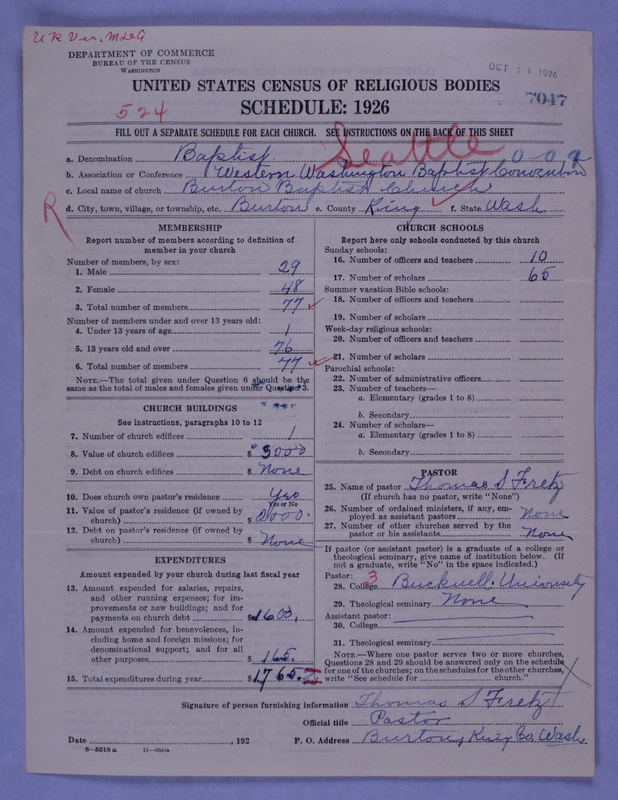 U R Ver. MLG
DEPARTMENT OF COMMERCE
BUREAU OF THE CENSUS
WASHINGTON
OCT 11 1926
UNITED STATES CENSUS OF RELIGIOUS BODIES
7047
524
SCHEDULE: 1926
FILL OUT A SEPARATE SCHEDULE FOR EACH CHURCH. SEE INSTRUCTIONS ON THE BACK OF THIS SHEET
Seattle
a. Denomination Baptist 009
b. Association or Conference Western Washington Baptist Convention
c. Local name of church Burton Baptist Church
R
d. City, town, village, or township, etc. Burton e. County King f. State Wash
MEMBERSHIP
Report number of members according to definition of member in your church
Number of members, by sex:
1. Male 29
2. Female 48
3. Total number of members 77
Number of members under and over 13 years old:
4. Under 13 years of age 1
5. 13 years old and over 76
6. Total number of members 77
NOTE.—The total given under Question 6 should be the
same as the total of males and females given under Question 3.
CHURCH BUILDINGS
See instructions, paragraphs 10 to 12
7. Number of church edifices 1
8. Value of church edifices $ 5000
9. Debt on church edifices $ None
10. Does church own pastor's residence Yes
Yes or No
11. Value of pastor's residence (if owned by
church) $ 2000.
12. Debt on pastor's residence (if owned by
church) $ None
EXPENDITURES
Amount expended by your church during last fiscal year
13. Amount expended for salaries, repairs,
and other running expenses; for im-
provements or new buildings; and for
payments on church debt $1600.
14. Amount expended for benevolences, in-
cluding home and foreign missions; for
denominational support; and for all
other purposes 165.
15. Total expenditures during year $1,765.
CHURCH SCHOOLS
Report here only schools conducted by this church
Sunday schools:
16. Number of officers and teachers 10
17. Number of scholars 65
Summer vacation Bible schools:
18. Number of officers and teachers
19. Number of scholars
Week-day religious schools:
20. Number of officers and teachers
21. Number of scholars
Parochial schools:
22. Number of administrative officers
23. Number of teachers—
a. Elementary (grades 1 to 8)
b. Secondary
24. Number of scholars—
a. Elementary (grades 1 to 8)
b. Secondary
PASTOR
25. Name of pastor Thomas S. Fretz
(If church has no pastor, write "None")
26. Number of ordained ministers, if any, em-
ployed as assistant pastors None
27. Number of other churches served by the
pastor or his assistants None
If pastor (or assistant pastor) is a graduate of a college or
theological seminary, give name of institution below. (If
not a graduate, write "No" in the space indicated.)
Pastor:
28. College 3 Bucknell University
29. Theological seminary None
Assistant pastor:
30. College
31. Theological seminary
NOTE.—Where one pastor serves two or more churches,
Questions 28 and 29 should be answered only on the schedule
for one of the churches; on the schedules for the other churches,
write "See schedule for church."
Signature of person furnishing information Thomas S. Fretz
Official title Pastor
Date , 192 P. O. Address Burton, King Co. Wash
8—5518a